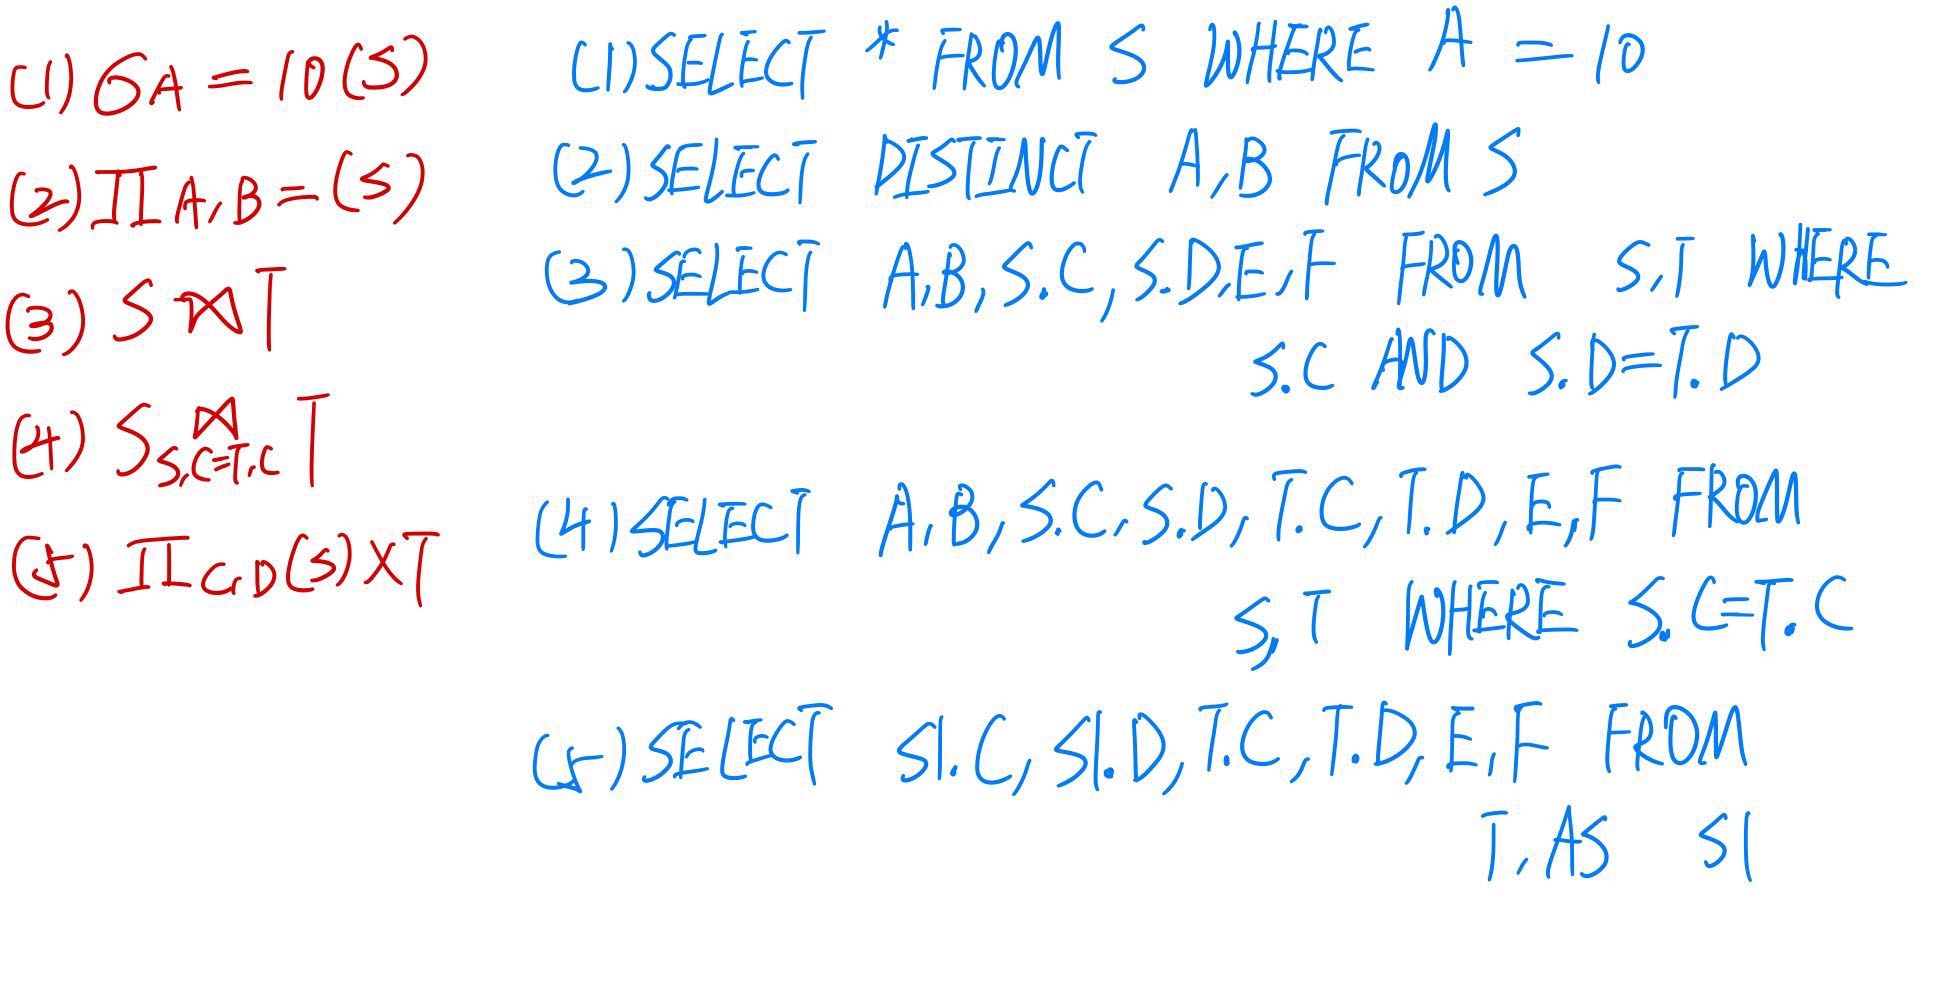 (1) σA = 10(S)
(2) ΠA,B=(S)
(3) S⋈T
(4) S ⋈ S.C=T.C T
(5) ΠC,D(S)×T
(1) SELECT * FROM S WHERE A = 10
(2) SELECT DISTINCT A,B FROM S
(3) SELECT A,B,S.C,S.D,E,F FROM S,T WHERE
S.C AND S.D=T.D
(4) SELECT A,B,S.C,S.D,T.C,T.D,E,F FROM
S,T WHERE S.C=T.C
(5) SELECT S1.C,S1.D,T.C,T.D,E,F FROM
T,AS S1